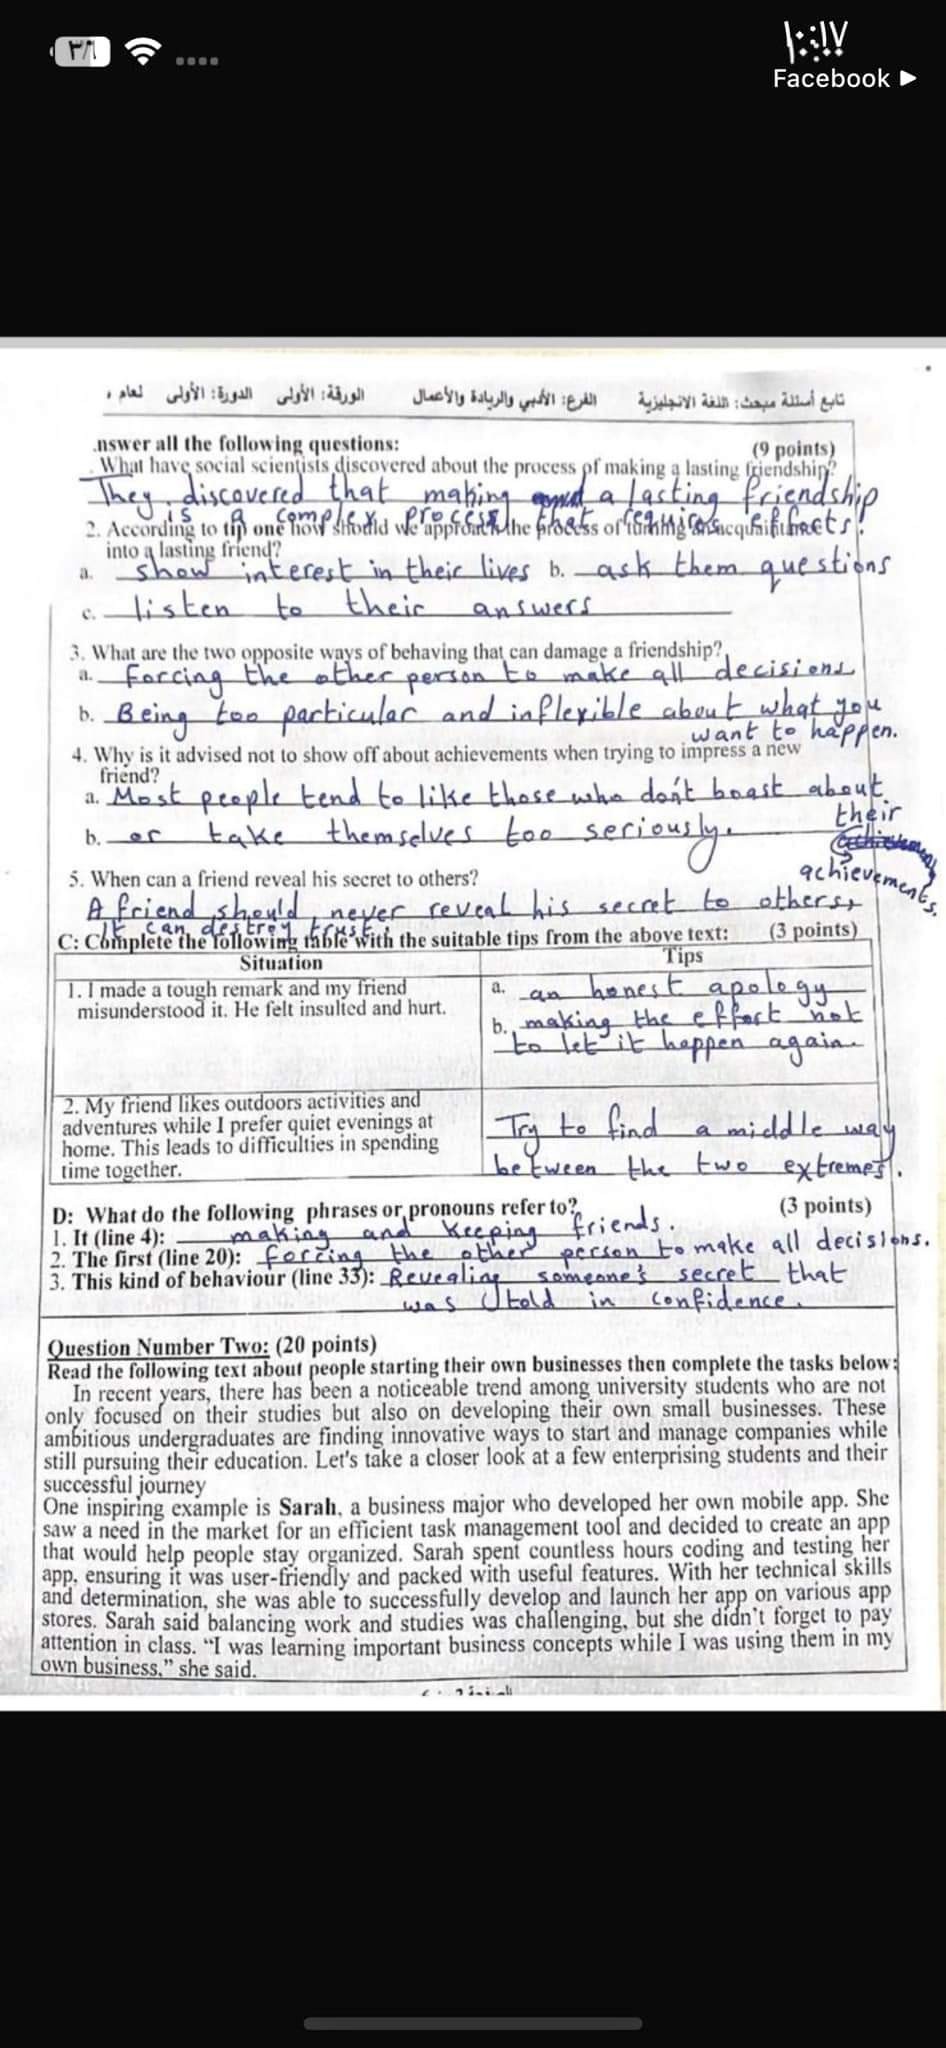 ١٠:١٧
٣٦
Facebook ▶
تابع أسئلة مبحث: اللغة الانجليزية الفرع: الأدبي والريادة والأعمال الورقة: الأولى الدورة: الأولى لعام
nswer all the following questions: (9 points)
What have social scientists discovered about the process of making a lasting friendship?
They discovered that making a lasting friendship
is a complex process that requires efforts.
2. According to tip one how should we approach the process of turning an acquaintance
into a lasting friend?
a. show interest in their lives b. ask them questions
c. listen to their answers
3. What are the two opposite ways of behaving that can damage a friendship?
a. Forcing the other person to make all decisions
b. Being too particular and inflexible about what you
want to happen.
4. Why is it advised not to show off about achievements when trying to impress a new
friend?
a. Most people tend to like those who don't boast about
their
achievements.
b. or take themselves too seriously.
5. When can a friend reveal his secret to others?
A friend should never reveal his secret to others,
It can destroy trust.
C: Complete the following table with the suitable tips from the above text: (3 points)
Situation Tips
1. I made a tough remark and my friend
misunderstood it. He felt insulted and hurt.
a. an honest apology
b. making the effort not
to let it happen again.
2. My friend likes outdoors activities and
adventures while I prefer quiet evenings at
home. This leads to difficulties in spending
time together.
Try to find a middle way
between the two extremes.
D: What do the following phrases or pronouns refer to? (3 points)
1. It (line 4): making and keeping friends.
2. The first (line 20): forcing the other person to make all decisions.
3. This kind of behaviour (line 33): Revealing someone's secret that
was told in confidence.
Question Number Two: (20 points)
Read the following text about people starting their own businesses then complete the tasks below:
In recent years, there has been a noticeable trend among university students who are not
only focused on their studies but also on developing their own small businesses. These
ambitious undergraduates are finding innovative ways to start and manage companies while
still pursuing their education. Let's take a closer look at a few enterprising students and their
successful journey
One inspiring example is Sarah, a business major who developed her own mobile app. She
saw a need in the market for an efficient task management tool and decided to create an app
that would help people stay organized. Sarah spent countless hours coding and testing her
app, ensuring it was user-friendly and packed with useful features. With her technical skills
and determination, she was able to successfully develop and launch her app on various app
stores. Sarah said balancing work and studies was challenging, but she didn't forget to pay
attention in class. "I was learning important business concepts while I was using them in my
own business," she said.